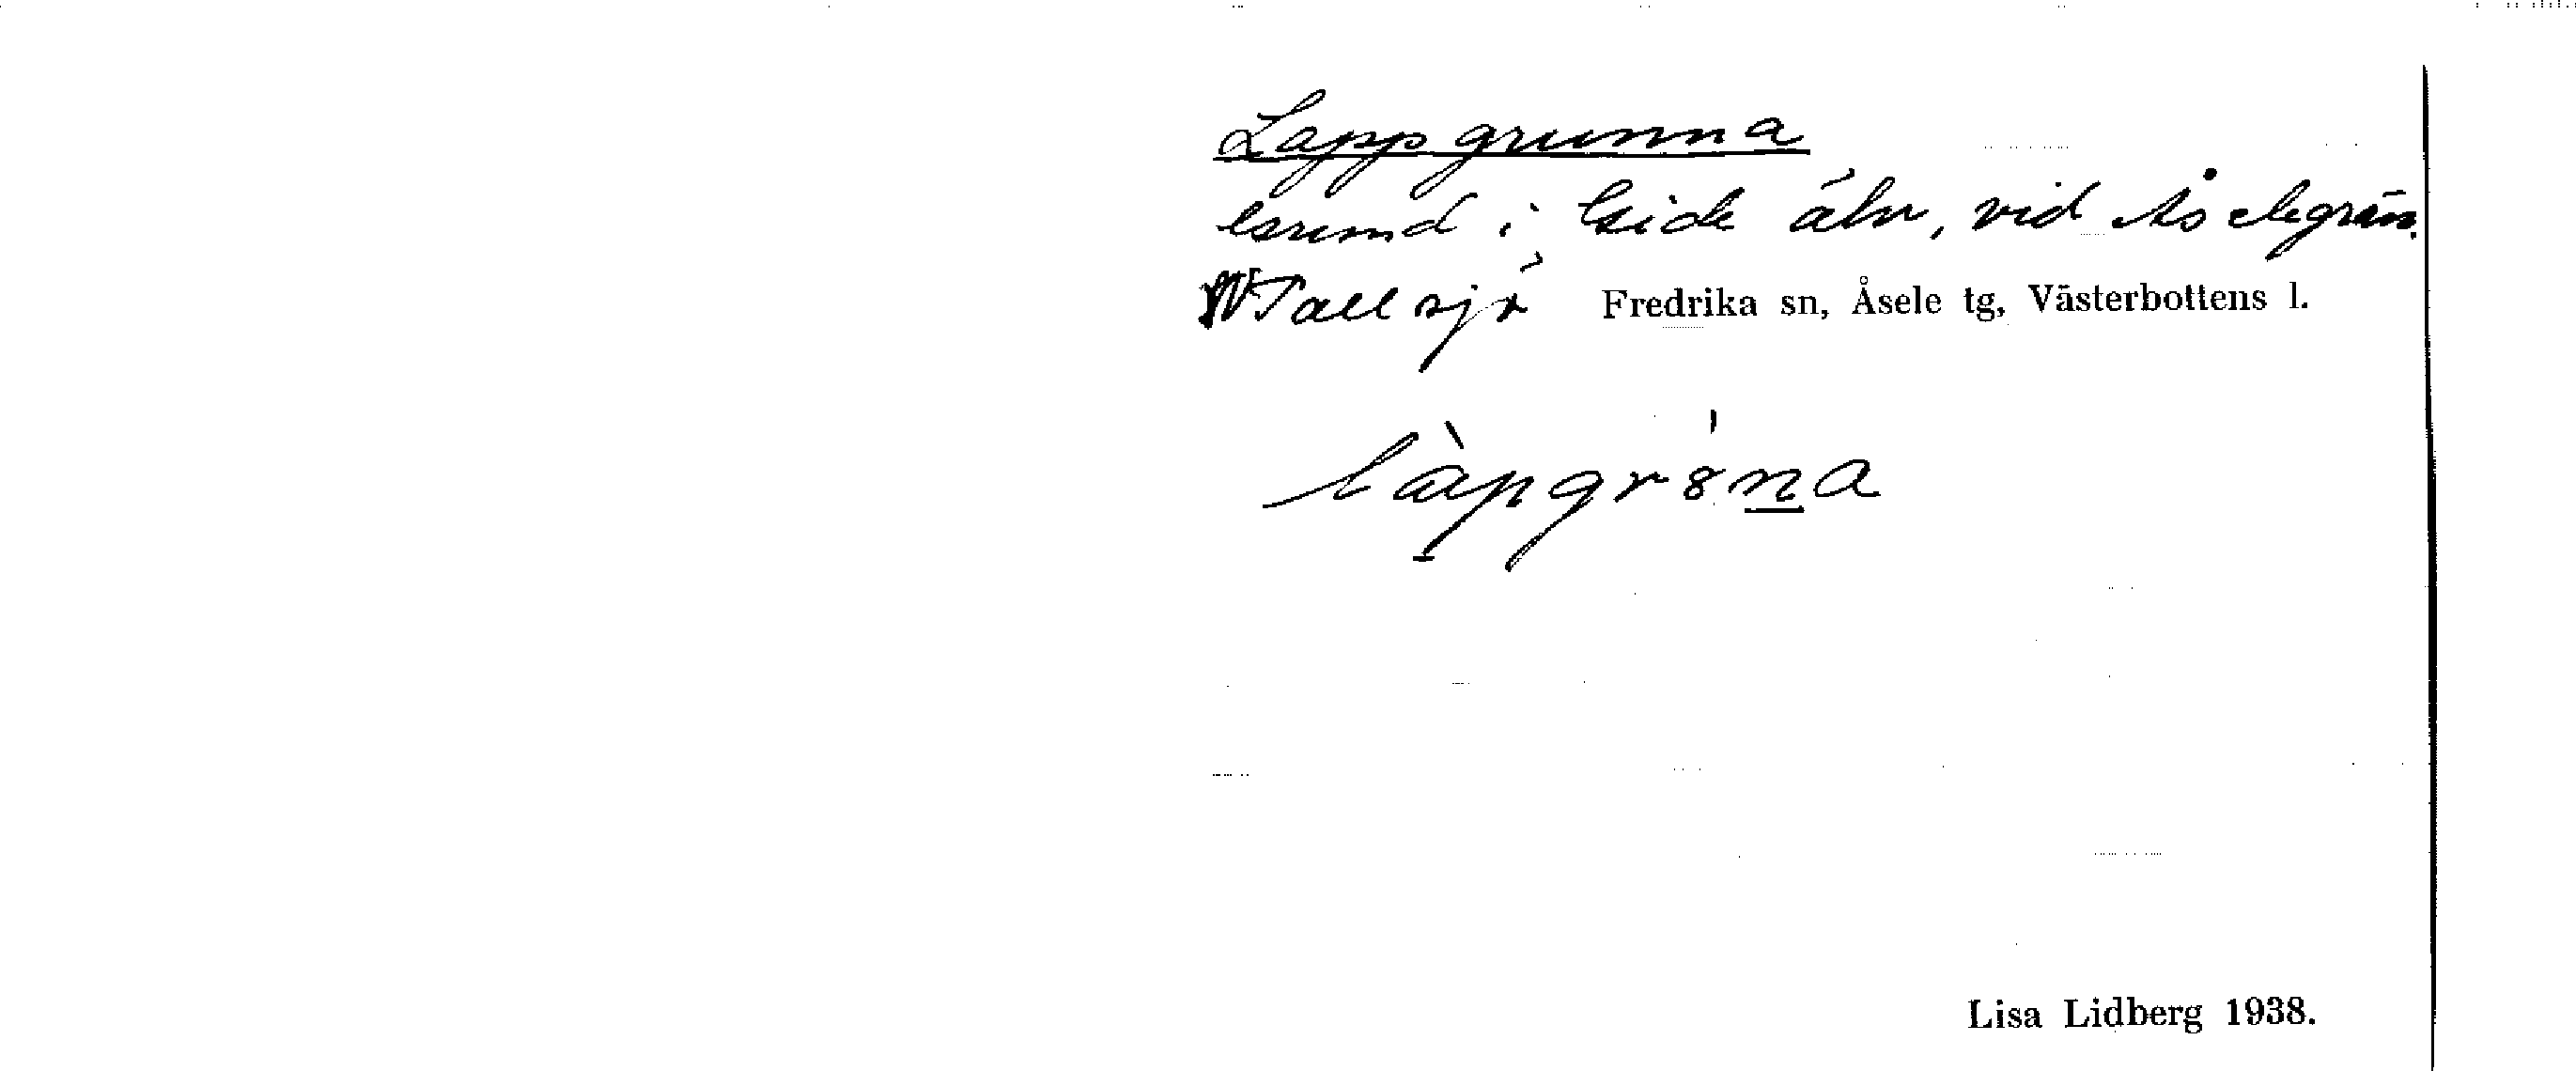 Lappgrunna
grund i Gide älv, vid Åselegrän.
V Tallsjö Fredrika sn, Åsele tg, Västerbottens l.
làpgr8na
Lisa Lidberg 1938.